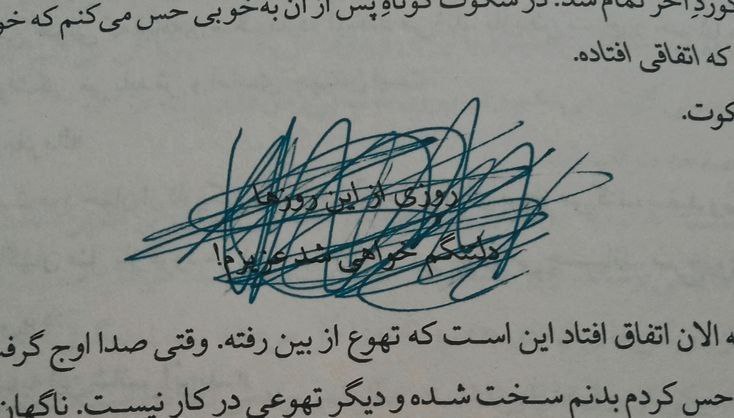 آخر تمام شد. در سکوت کوتاهِ پس از آن به‌خوبی حس می‌کنم که
که اتفاقی افتاده.
کوت.
روزی از این روزها
دلتنگم خواهی شد عزیزم!
الان اتفاق افتاد این است که تهوع از بین رفته. وقتی صدا اوج گرف
حس کردم بدنم سخت شده و دیگر تهوعی در کار نیست. ناگهان